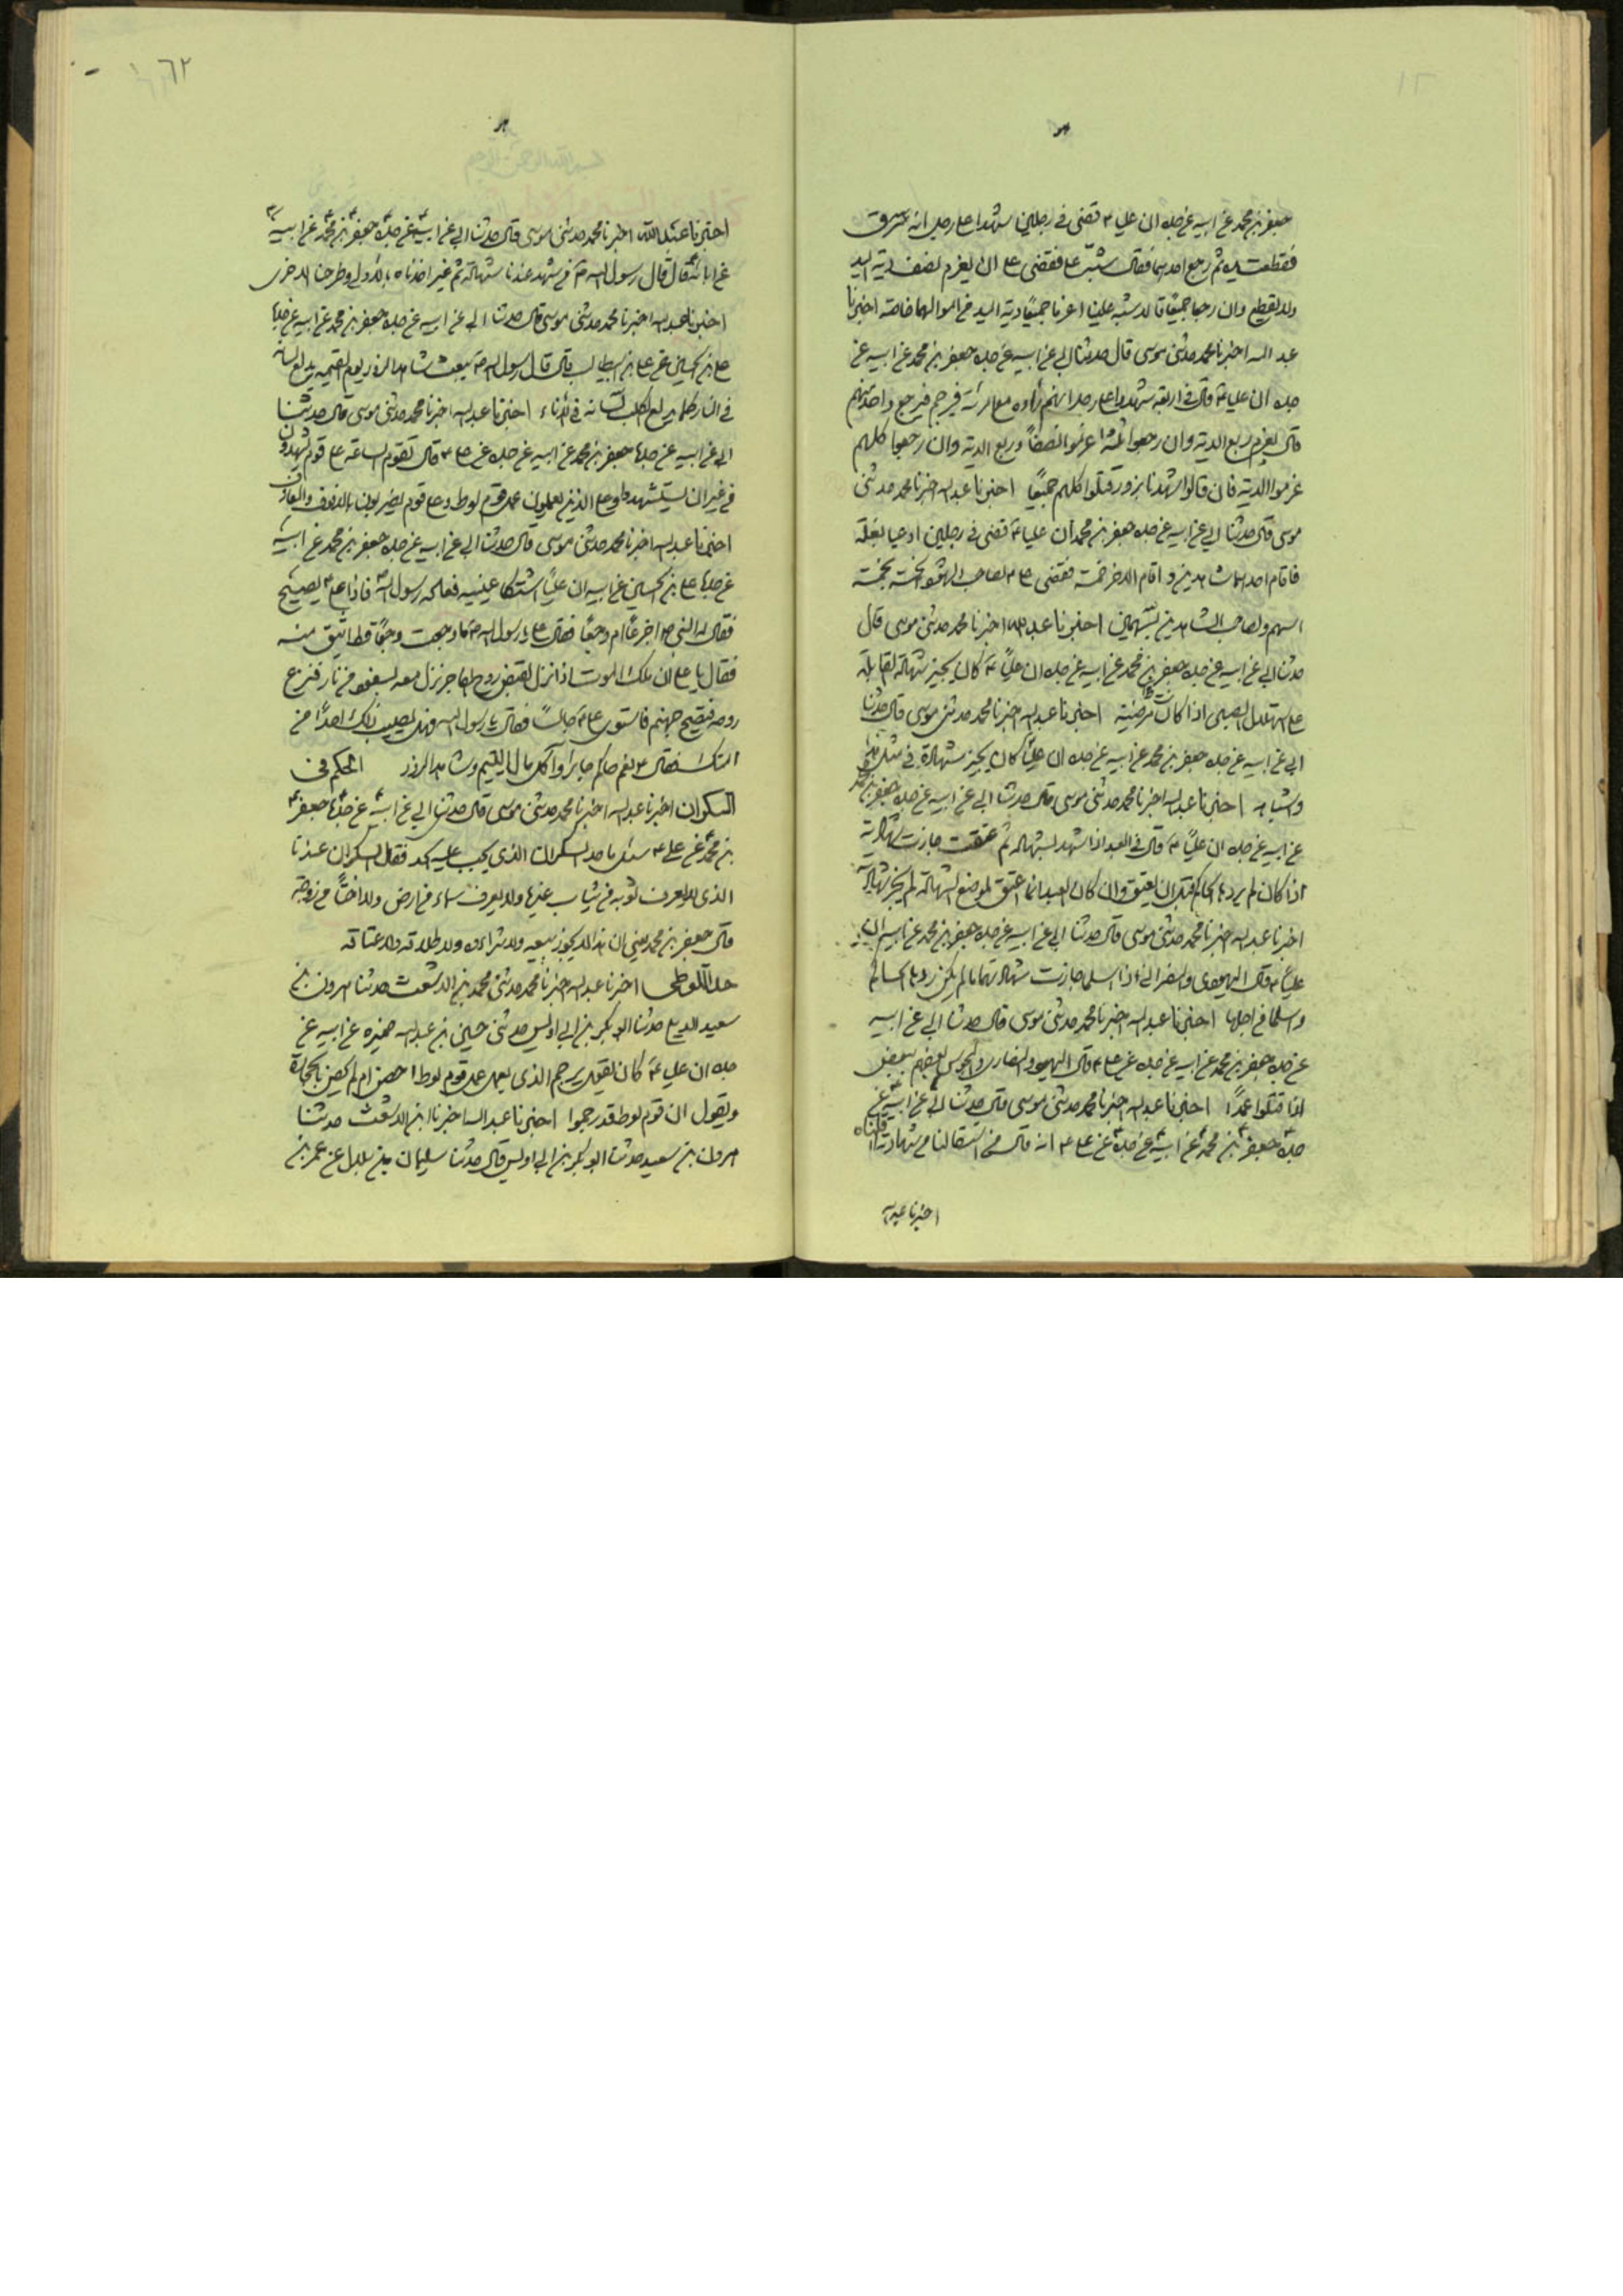 جعفر بن محمد عن ابيه عن جده ان عليا ع قضى في رجلين شهدا على رجل انه سرق
فقطعت يده ثم رجع احدهما فقال شبه على فقضى على ان يغرم نصف دية اليد
ولا يقطع وان رجعا جميعا قالا شبه علينا اغرما جميعا دية اليد من اموالهما خاصة اخبرنا
عبد الله اخبرنا محمد حدثنى موسى قال حدثنا ابي عن ابيه عن جده جعفر بن محمد عن ابيه عن
جده ان عليا ع قال في اربعة شهدوا على رجل انهم راوه مع امرأة فيرجم فيرجع واحد منهم
قال يغرم ربع الدية وان رجعوا ثلثة اغرموا نصفاً وربع الدية وان رجعوا كلهم
غرموا الدية فان قالوا شهدنا بزور قتلوا كلهم جميعًا اخبرنا عبد الله اخبرنا محمد حدثنى
موسى قال حدثنا ابي عن ابيه عن جده جعفر بن محمد ان عليا ع قضى في رجلين ادعيا بغلة
فاقام احدهما شاهدين واقام الاخر خمسة فقضى على ع لصاحب الشهود الخمسة بخمسة
اسهم ولصاحب الشاهدين بسهمين اخبرنا عبد الله اخبرنا محمد حدثنى موسى قال
حدثنا ابي عن ابيه عن جده جعفر بن محمد عن ابيه عن جده ان عليا ع كان يجيز شهادة القابلة
على استهلال الصبي اذا كانت مرضية اخبرنا عبد الله اخبرنا محمد حدثنى موسى قال حدثنا
ابي عن ابيه عن جده جعفر بن محمد عن ابيه عن جده ان عليًا كان يجيز شهادة في مثل هذا
وشباهه اخبرنا عبد الله اخبرنا محمد حدثنى موسى قال حدثنا ابي عن ابيه عن جده جعفر بن محمد
عن ابيه عن جده ان عليًا ع قال في العبد اذا شهد لشهادة ثم عتقت جازت شهادته
اذا كان لم يردها الحاكم قبل ان يعتق وان كان العبد انما اعتق لموضع الشهادة لم يجز شهادته
اخبرنا عبد الله اخبرنا محمد حدثنى موسى قال حدثنا ابي عن ابيه عن جده جعفر بن محمد عن ابيه ان
عليا ع قال اليهودي والنصراني اذا اسلما جازت شهادتهما ما لم يكن ردها الحاكم
واسلما من اجلها اخبرنا عبد الله اخبرنا محمد حدثنى موسى قال حدثنا ابي عن ابيه
عن جده جعفر بن محمد عن ابيه عن جده عن على ع قال اليهود والنصارى والمجوس بعضهم ببعض
اذا قتلوا عمدًا اخبرنا عبد الله اخبرنا محمد حدثنى موسى قال حدثنا ابي عن ابيه عن
جده جعفر بن محمد عن ابيه عن جده عن على ع انه قال من استقالنا من شهادته اقلناه
اخبرنا عبد الله
٦٢
اخبرنا عبد الله اخبرنا محمد حدثنى موسى قال حدثنا ابي عن ابيه عن جده جعفر بن محمد عن ابيه
عن ابائه قال قال رسول الله ص من شهد عندنا شهادة ثم غير اخذناه بالاولى وطرحنا الاخرى
اخبرنا عبد الله اخبرنا محمد حدثنى موسى قال حدثنا ابي عن ابيه عن جده جعفر بن محمد عن ابيه عن جده
على بن الحسين عن على بن ابيطالب قال قال رسول الله ص يبعث شاهد الزور يوم القيمة يدلع لسانه
في النار كما يدلع الكلب لسانه في الاناء اخبرنا عبد الله اخبرنا محمد حدثنى موسى قال حدثنا
ابي عن ابيه عن جده جعفر بن محمد عن ابيه عن جده عن على ع قال تقوم الساعة على قوم يشهدون
من غير ان يستشهدوا وعلى الذين يعملون عمل قوم لوط وعلى قوم يضربون بالدفوف والمعازف
اخبرنا عبد الله اخبرنا محمد حدثنى موسى قال حدثنا ابي عن ابيه عن جده جعفر بن محمد عن ابيه
عن جده على بن الحسين عن ابيه ان عليًا اشتكا عينيه فعاده رسول الله فاذا على ع يصيح
فقال له النبي ص اجزعًا ام وجعًا فقال على يا رسول الله ص ما وجعت وجعًا قط اشق منه
فقال يا على ان ملك الموت اذا نزل لقبض روح الفاجر نزل معه بسفود من نار فنزع
روحه فتصيح جهنم فاستوى على ع جالسًا فقال يا رسول الله فهل يصيب ذلك احدًا من
امتك فقال نعم حاكم جايرا وآكل مال اليتيم وشاهد الزور الحكم في
السكران اخبرنا عبد الله اخبرنا محمد حدثنى موسى قال حدثنا ابي عن ابيه عن جده جعفر
بن محمد عن على ع سئل ما حد السكران الذي يجب عليه الحد فقال السكران عندنا
الذى لا يعرف ثوبه من ثياب غيره ولا يعرف سماء من ارض ولا اختًا من زوجة
قال جعفر بن محمد يعنى ان هذا لا يجوز بيعه ولا شراءه ولا طلاقه ولا عتاقه
حد اللوطى اخبرنا عبد الله اخبرنا محمد حدثنى محمد بن الاشعث حدثنا هرون بن
سعيد الايلى حدثنا ابو بكر بن ابي اويس حدثنى حسين بن عبد الله ضميرة عن ابيه عن
جده ان عليا ع كان يقول يرجم الذى يعمل عمل قوم لوط احصن ام لم يحصن بالحجارة
ويقول ان قوم لوط قد رجموا اخبرنا عبد الله اخبرنا ابن الاشعث حدثنا
هرون بن سعيد حدثنا ابو بكر بن ابي اويس قال حدثنا سليمان بن بلال عن عمر بن